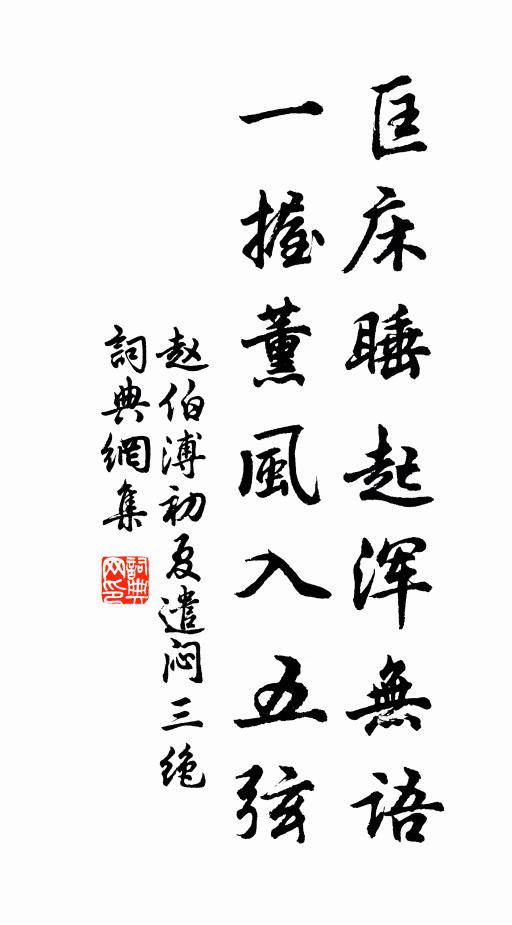 匡床睡起浑無語
一握薰風入五弦
赵伯溥初夏遣闷三绝
詞典網集
詞典网印